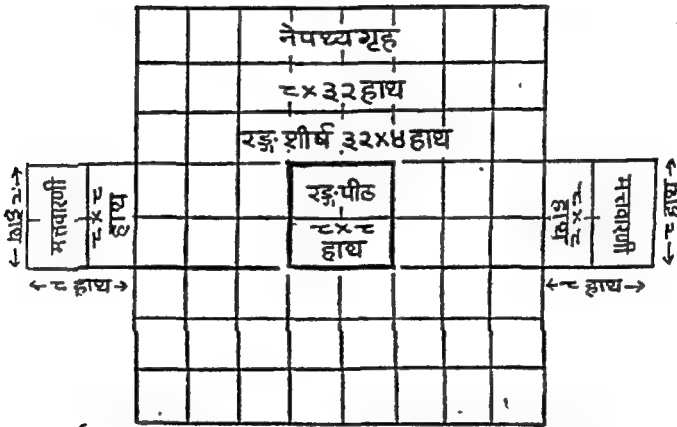 नेपथ्यगृह
८×३२ हाथ
रङ्ग शीर्ष ३२×४ हाथ
रङ्ग पीठ
८×८
हाथ
←८ हाथ→
मत्तवारणी
८×८
हाथ
←८ हाथ→
८×८
हाथ
मत्तवारणी
←८ हाथ→
←८ हाथ→